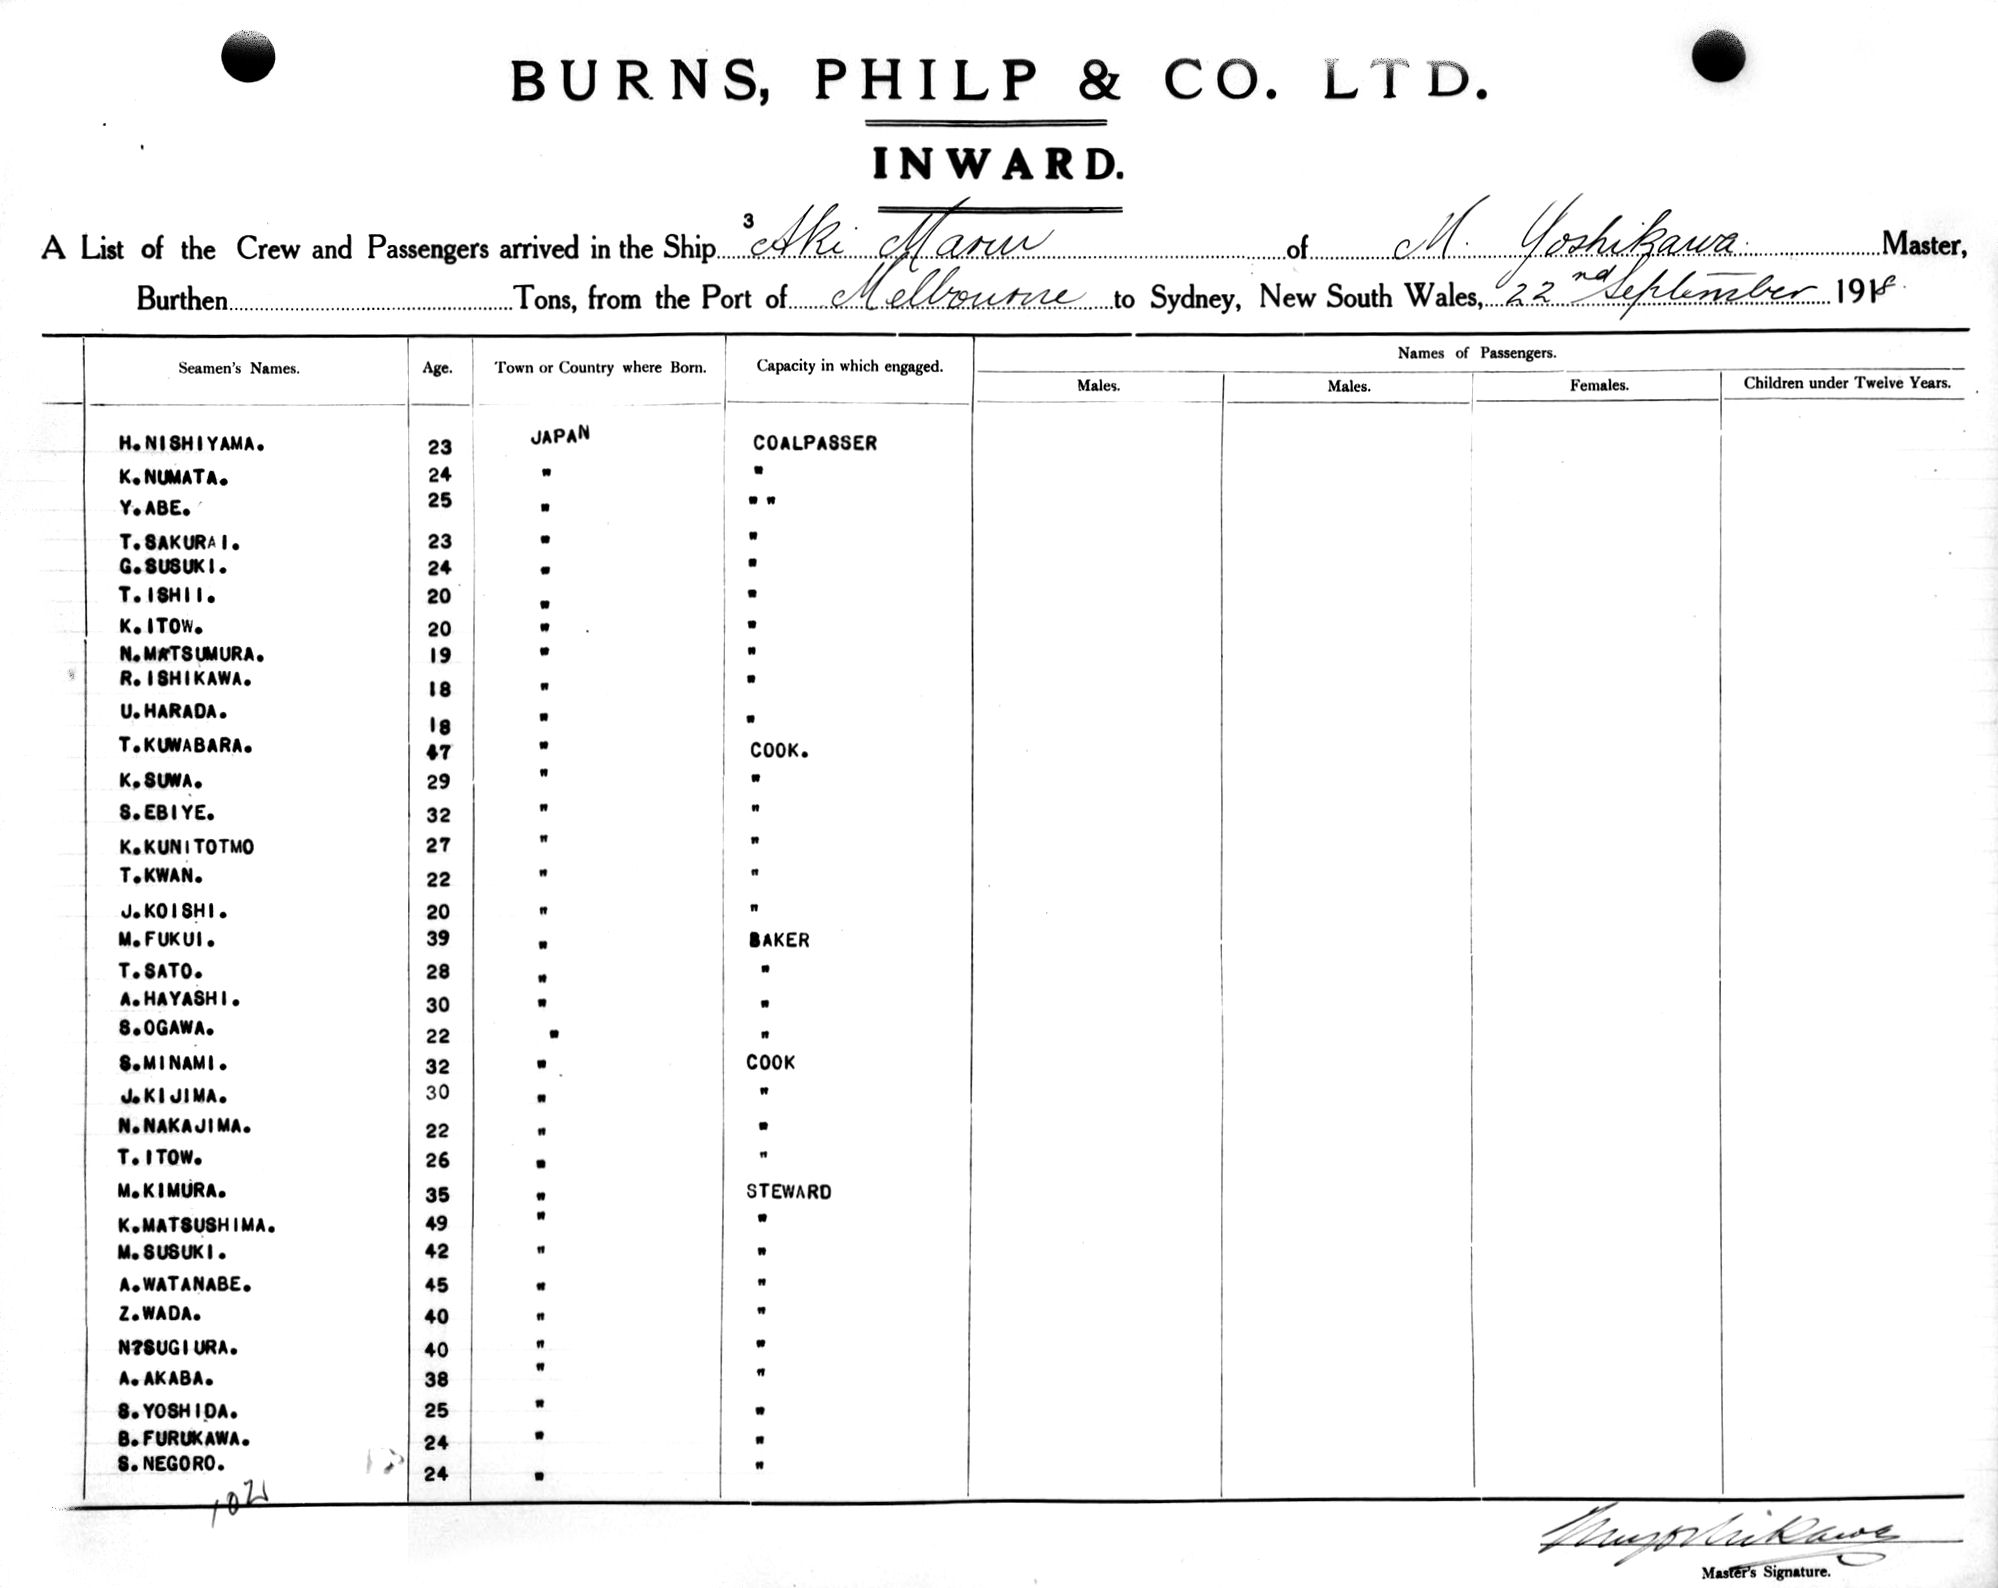 BURNS, PHILP & CO. LTD.
INWARD.
3
A List of the Crew and Passengers arrived in the Ship Aki Maru of M. Yoshikawa Master,
Burthen Tons, from the Port of Melbourne to Sydney, New South Wales, 22nd September 1918.
Names of Passengers.
Seamen's Names. Age. Town or Country where Born. Capacity in which engaged. Males. Males. Females. Children under Twelve Years.
H.NISHIYAMA. 23 JAPAN COALPASSER
K.NUMATA. 24 " "
Y.ABE. 25 " " "
T.SAKURAI. 23 " "
G.SUSUKI. 24 " "
T.ISHII. 20 " "
K.ITOW. 20 " "
N.MATSUMURA. 19 " "
R.ISHIKAWA. 18 " "
U.HARADA. 18 " "
T.KUWABARA. 47 " COOK.
K.SUWA. 29 " "
S.EBIYE. 32 " "
K.KUNITOTMO 27 " "
T.KWAN. 22 " "
J.KOISHI. 20 " "
M.FUKUI. 39 " BAKER
T.SATO. 28 " "
A.HAYASHI. 30 " "
S.OGAWA. 22 " "
S.MINAMI. 32 " COOK
J.KIJIMA. 30 " "
N.NAKAJIMA. 22 " "
T.ITOW. 26 " "
M.KIMURA. 35 " STEWARD
K.MATSUSHIMA. 49 " "
M.SUSUKI. 42 " "
A.WATANABE. 45 " "
Z.WADA. 40 " "
N?SUGIURA. 40 " "
A.AKABA. 38 " "
S.YOSHIDA. 25 " "
B.FURUKAWA. 24 " "
S.NEGORO. 24 " "
Master's Signature.